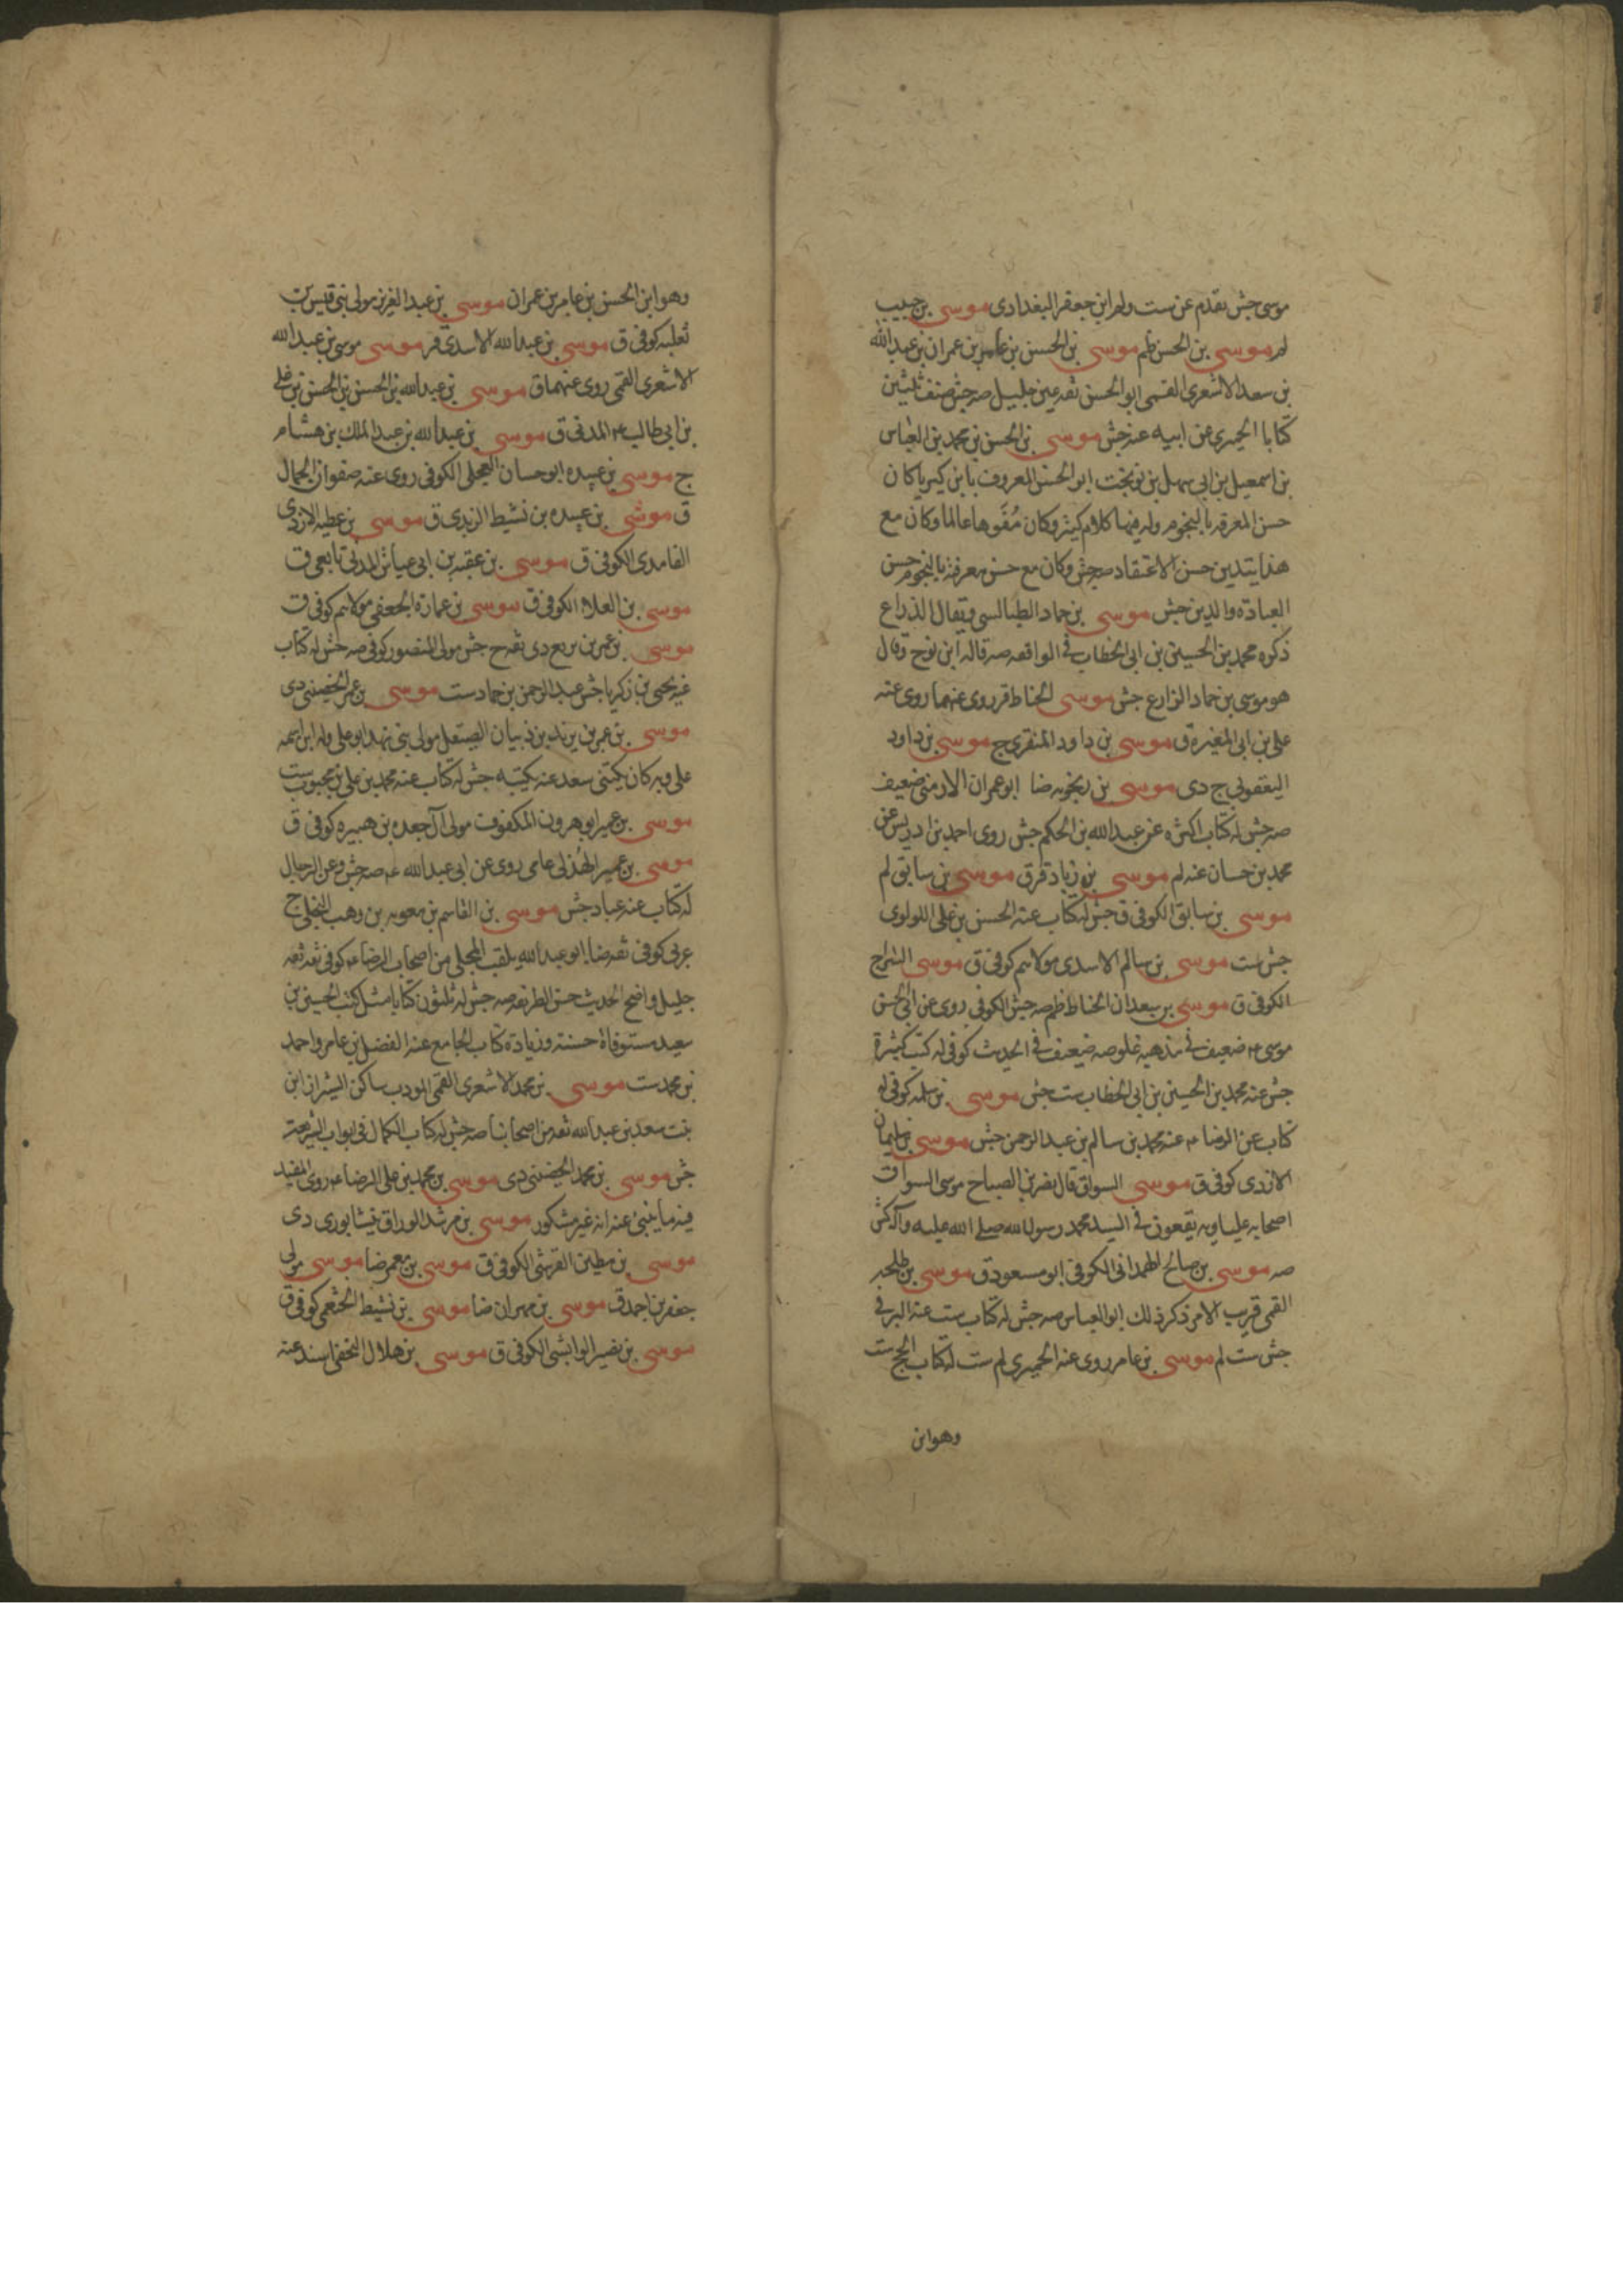 موسى جش تقدم عن ست ولم ابن جعفر البغدادى موسى بن حبيب
لم موسى بن الحسن ظم موسى بن الحسن بن عامر بن عمران بن عبد الله
بن سعد الاشعرى القمى ابو الحسن ثقه عين جليل صه جش صنف ثلثين
كتابا الحميرى عن ابيه عنه جش موسى بن الحسن بن محمد بن العباس
بن اسمعيل بن ابى سهل بن نوبخت ابو الحسن المعروف بابن كبرياء كان
حسن المعرفه بالنجوم وله فيها كلام كثير وكان مُفَوها عالما وكان مع
هذا يتدين حسن الاعتقاد صه جش وكان مع حسن معرفة بالنجوم حسن
العبادة والدين جش موسى بن حماد الطيالسى ويقال الذراع
ذكره محمد بن الحسين بن ابى الخطاب فى الواقعه صه قاله ابن نوح وقال
هو موسى بن حماد الزارع جش موسى الحناط قر روى عنهما روى عنه
على بن ابى المغيرة ق موسى بن داود المنقرى ج موسى بن داود
اليعقوبى ج دى موسى بن رنجويه ضا ابو عمران الارمنى ضعيف
صه جش له كتاب اكثره عن عبد الله بن الحكم جش روى احمد بن ادريس عن
محمد بن حسان عنه لم موسى بن زياد قر ق موسى بن سابق لم
موسى بن سابق الكوفى ق جش له كتاب عنه الحسن بن على اللولوى
جش ست موسى بن سالم الاسدى مولاهم كوفى ق موسى السراج
الكوفى ق موسى بن سعدان الحناط ظم صه جش الكوفى روى عن ابى الحسن
موسى ع ضعيف فى مذهبه غلو صه ضعيف فى الحديث كوفى له كتب كثيرة
جش عنه محمد بن الحسين بن ابى الخطاب ست جش موسى بن سلمه كوفى له
كتاب عن الرضا ع عنه محمد بن سالم بن عبد الرحمن جش موسى بن سليمان
الازدى كوفى ق موسى السواق قال نصر بن الصباح موسى السواق
اصحابه علياويه يقعون فى السيد محمد رسول الله صلى الله عليه وآله كش
صه موسى بن صالح الهمدانى الكوفى ابو مسعود ق موسى بن طلحه
القمى قريب الامر ذكر ذلك ابو العباس صه جش له كتاب ست عنه البرقى
جش ست لم موسى بن عامر روى عنه الحميرى لم ست له كتاب الحج ست
وهو ابن
وهو ابن الحسن بن عامر بن عمران موسى بن عبد العزيز مولى بنى قيس بن
ثعلبه كوفى ق موسى بن عبد الله الاسدى قر موسى موسى بن عبد الله
الاشعرى القمى روى عنهما ق موسى بن عبد الله بن الحسن بن الحسن بن على
بن ابى طالب ع المدنى ق موسى بن عبد الله بن عبد الملك بن هشام
ج موسى بن عبيده ابو حسان العجلى الكوفى روى عنه صفوان الجمال
ق موسى بن عبيده بن نشيط الزبدى ق موسى بن عطيه الازدى
الغامدى الكوفى ق موسى بن عقبه بن ابى عياش المدنى تابعى ق
موسى بن العلاء الكوفى ق موسى بن عمارة الجعفى مولاهم كوفى ق
موسى بن عمر بن بزيع دى ثقه ج جش مولى المنصور كوفى صه جش له كتاب
عنه يحيى بن زكريا جش عبد الرحمن بن حماد ست موسى بن عمر الحضينى دى
موسى بن عمر بن يزيد بن ذبيان الصيقل مولى بنى نهد ابو على وله ابن اسمه
على وبه كان يكنى سعد عنه بكتبه جش له كتاب عنه محمد بن على بن محبوب ست
موسى بن عمير ابو هرون المكفوف مولى آل جعده بن هبيره كوفى ق
موسى بن عمير الهُذلى عامى روى عن ابى عبد الله ع صه جش وعن الرجال
له كتاب عنه عباد جش موسى بن القاسم بن معويه بن وهب البجلى ج
عربى كوفى ثقه ضا ابو عبد الله يلقب المجلى من اصحاب الرضا ع كوفى ثقه ثقه
جليل واضح الحديث حسن الطريقه صه جش له ثلثون كتابا مثل كتب الحسين بن
سعيد مستوفاة حسنة وزيادة كتاب الجامع عنه الفضل بن عامر واحمد
بن محمد ست موسى بن محمد الاشعرى القمى المودب ساكن الشيراز ابن
بنت سعد بن عبد الله ثقه من اصحابنا صه جش له كتاب الكمال فى ابواب الشريعة
جش موسى بن محمد الحضينى دى موسى بن محمد بن على الرضا ع روى المفيد
فيه ما ينبئ عنه انه غير مشكور موسى بن مرشد الوراق نيشابورى دى
موسى بن مطين القرشى الكوفى ق موسى بن معمر ضا موسى مولى
جعفر بن احمد ق موسى بن مهران ضا موسى بن نشيط الخثعمى كوفى ق
موسى بن نصير الوابشى الكوفى ق موسى بن هلال النخعى اسند عنه